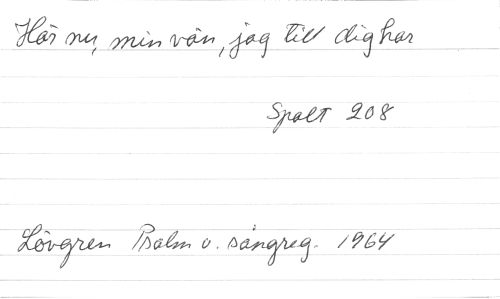 Hör nu, min vän, jag till dig har
Spalt 208
Lövgren Psalm o. sångreg. 1964